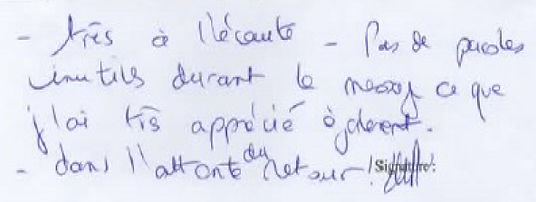 - très à l'écoute - Pas de paroles
inutiles durant le massage ce que
j'ai très apprécié également.
- dans l'attente du retour! Signature: